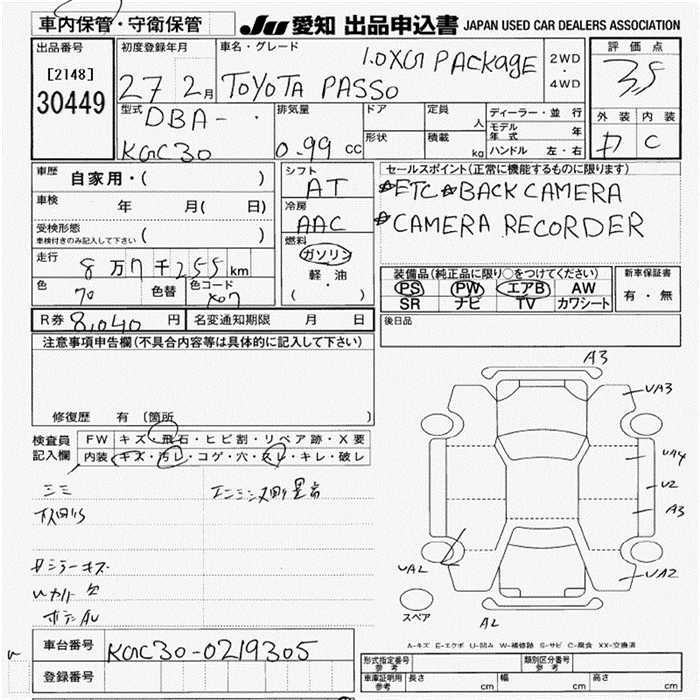 車内保管・守衛保管
JU 愛知 出品申込書 JAPAN USED CAR DEALERS ASSOCIATION
出品番号
[2148]
30449
初度登録年月
27 2月
車名・グレード
1.0XG PACKAGE
TOYOTA PASSO
2WD
・
4WD
評価点
3.5
外装 内装
D C
型式
DBA-
KGC30
排気量
0.99 cc
ドア
形状
定員
人
積載
kg
ディーラー・並行
モデル年式 年
ハンドル 左・右
車歴
自家用・( )
車検
年 月( 日)
受検形態
車検付きのみ記入して下さい ( )
走行
8万7千255km
色
70
色替
色コード
X07
シフト
AT
冷房
AAC
燃料
ガソリン
軽・油
( )
セールスポイント(正常に機能するものに限ります)
*ETC *BACK CAMERA
*CAMERA RECORDER
装備品(純正品に限り○をつけてください)
PS PW エアB AW
SR ナビ TV カワシート
新車保証書
有・無
R券 8,040 円
名変通知期限 月 日
後日品
注意事項申告欄(不具合内容等は具体的に記入して下さい)
修復歴 有 [箇所 ]
検査員
記入欄
FW キズ・飛石・ヒビ割・リペア跡・X要
内装 キズ・汚レ・コゲ・穴・スレ・キレ・破レ
A3
UA3
UA4
U2
A3
UA2
UAL
AL
スペア
A-キズ E-エクボ U-凹み W-補修跡 S-サビ C-腐食 XX-交換済
車台番号
KGC30-0219305
登録番号
形式指定番号
参考
類別区分番号
参考
車庫証明用
参考
長さ cm
幅 cm
高さ cm